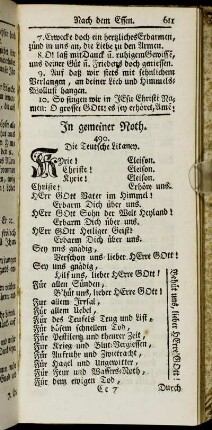 Nach dem Essen. 611
7. Erwecke doch ein hertzliches Erbarmen,
zünd in uns an, die Liebe zu den Armen.
8. O! laß mit Danck ü. ruhigem Gewisse,
uns deiner Güt ü. Friedens doch geniessen.
9. Auf daß wir stets mit sehnlichem
Verlangen, an deiner Lieb und Himmels-
Wollust hangen.
10. So singen wir in JEsu Christi Na-
men: O grosser GOtt! es sey erhört, Amē!
In gemeiner Noth.
490.
Die Teutsche Litaney.
KYrie! Eleison.
Christe! Eleison.
Kyrie! Eleison.
Christe! Erhöre uns.
HErr GOtt Vater im Himmel!
Erbarm Dich über uns.
HErr GOtt Sohn der Welt Heyland!
Erbarm Dich über uns.
HErr GOtt Heiliger Geist!
Erbarm Dich über uns.
Sey uns gnädig,
Verschon uns lieber HErre GOtt!
Sey uns gnädig,
Hilf uns, lieber HErre GOtt!
Für allen Sünden,
B'hüt uns, lieber HErre GOtt!
Für allem Irrsal,
Für allem Uebel,
Für des Teufels Trug und List,
Für bösem schnellem Tod,
Für Pestilentz und theurer Zeit,
Für Krieg und Blut-Vergiessen,
Für Aufruhr und Zwietracht,
Für Hagel und Ungewitter,
Für Feur und Wassers-Noth,
Für dem ewigen Tod,
Behüt uns, lieber HErre GOtt!
Cc 7 Durch